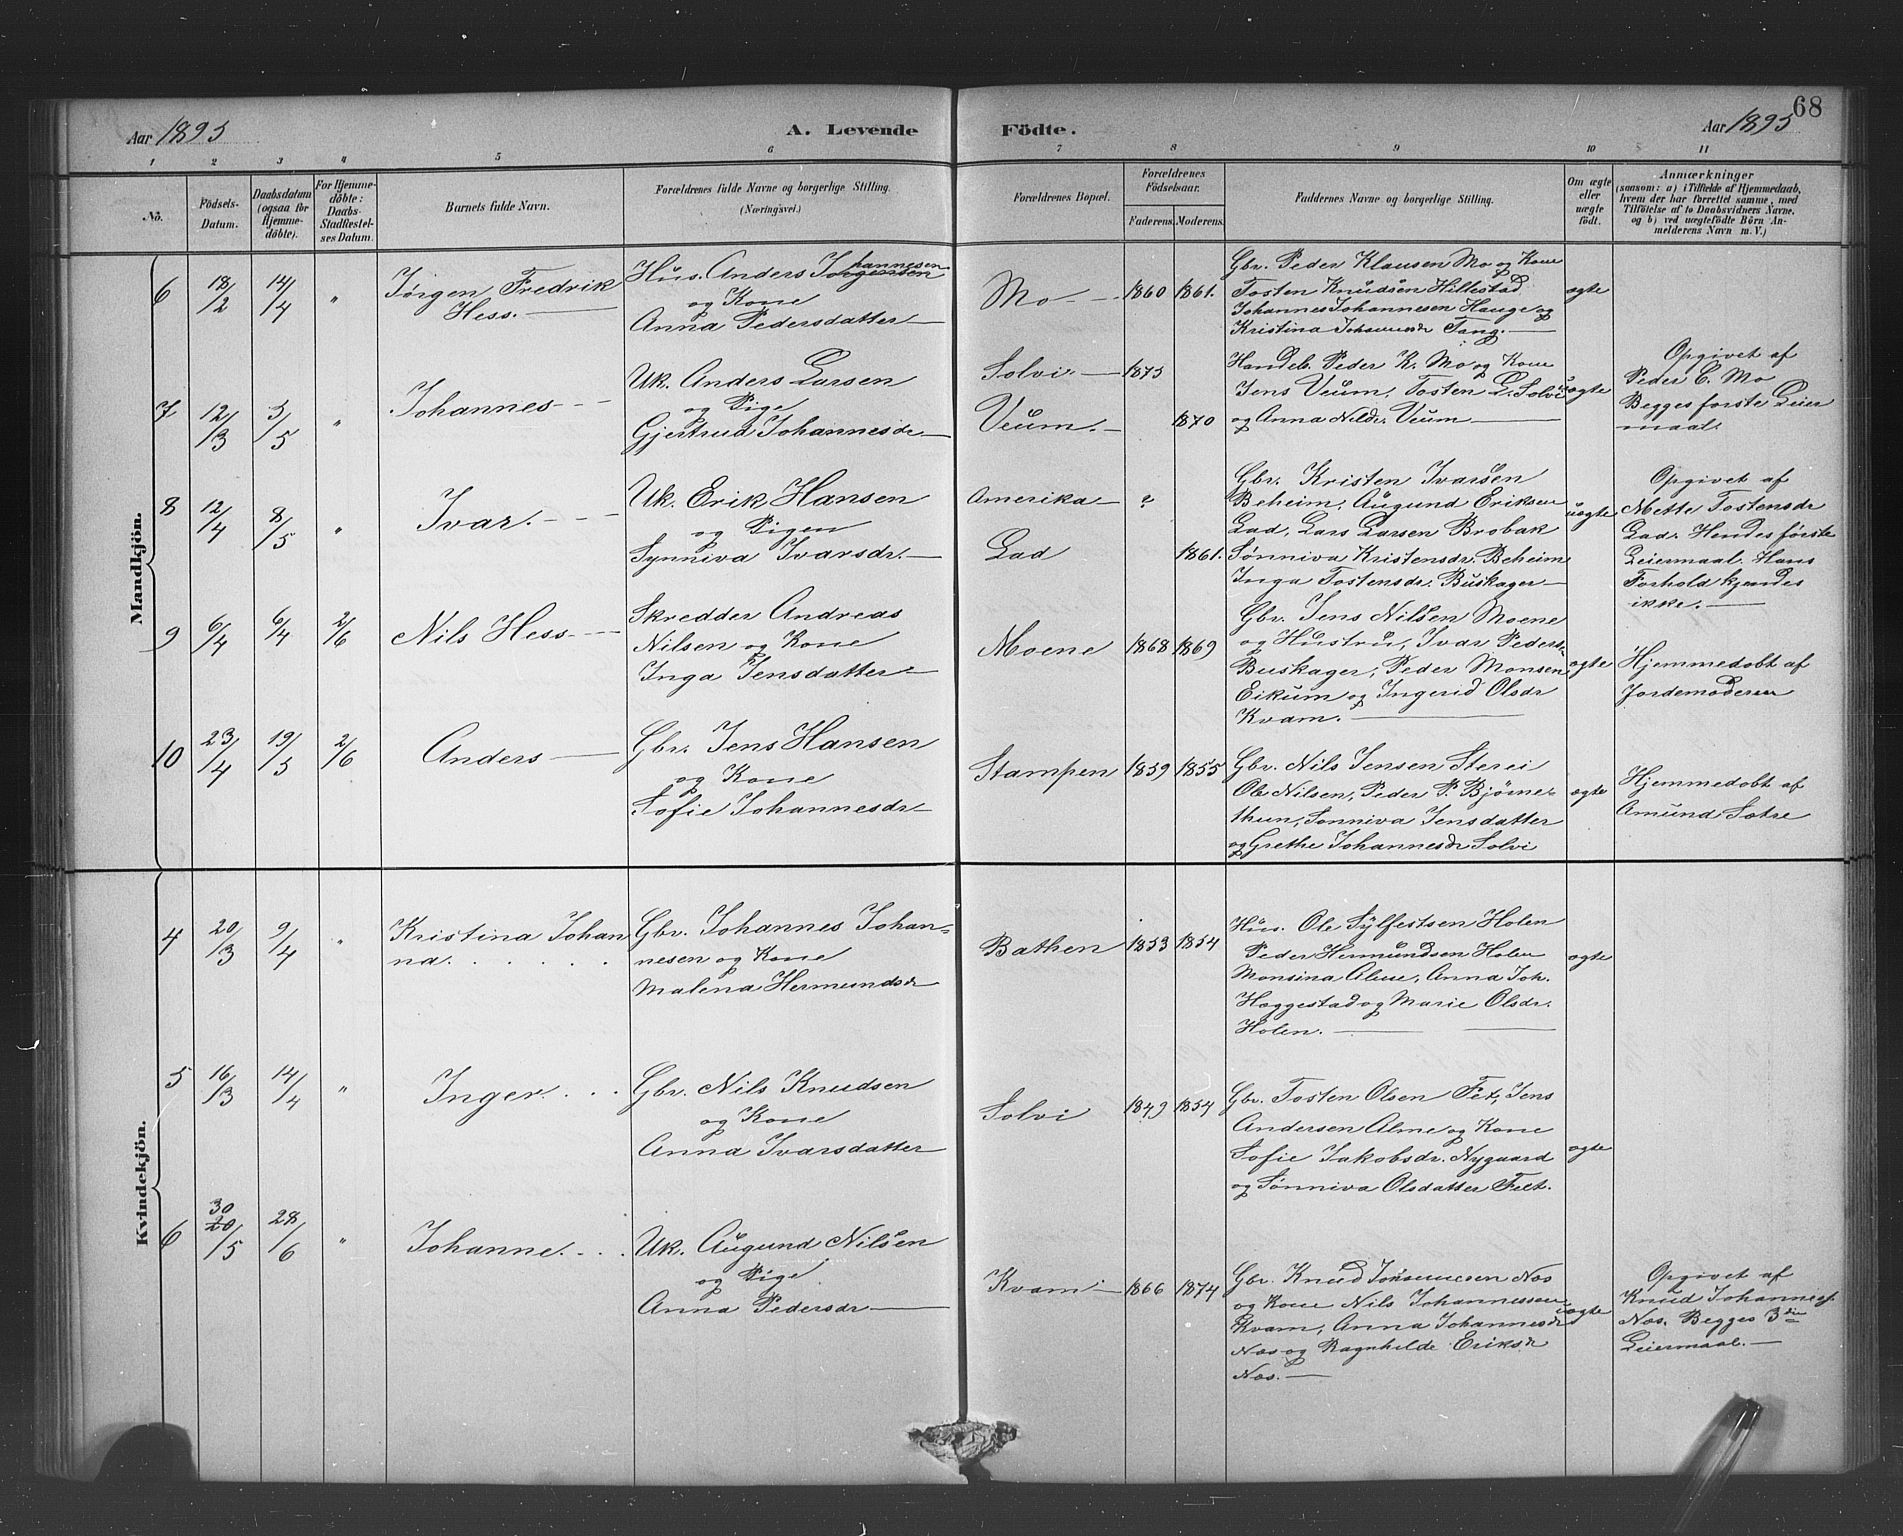 68
Aar 1895
A. Levende
Födte.
Aar 1895
1 2 3 4 5 6 7 8 9 10 11
No.
Födsels-
Datum.
Daabsdatum
(ogsaa for
Hjemme-
döbte).
For Hjemme-
döbte:
Daabs-
Stadfæstel-
ses Datum.
Barnets fulde Navn.
Forældrenes fulde Navne og borgerlige Stilling.
(Næringsvei.)
Forældrenes Bopæl.
Forældrenes
Födselsaar.
Faderens. Moderens.
Faddernes Navne og borgerlige Stilling.
Om ægte
eller
uægte
födt.
Anmærkninger
(saasom: a) i Tilfælde af Hjemmedaab,
hvem der har forrettet samme, med
Tilföielse af to Daabsvidners Navne,
og b) ved uægtefödte Börn An-
melderens Navn m. V.)
Mandkjön.
6 18/2 14/4 "
Jørgen Fredrik
Hess.
hannesen
Hus. Anders Jorgensen
og Kone
Anna Pedersdatter
Mo 1860 1861.
Gbr. Peder Klausen Mo og Kone
Tosten Knudsen Hillestad
Johannes Johannesen Hauge og
Kristina Johannesdr Tang.
ægte
7 12/3 5/5 "
Johannes
Uk. Anders Larsen
og Pige
Gjertrud Johannesdr
Solvi. 1875
Veum. 1870
Handelb. Peder K. Mo og Kone
Jens Veum, Tosten L. Solvi
og Anna Nilsdr. Veum
uægte
Opgivet af
Peder C. Mo
Begges første Leier
maal.
8 12/4 8/5 "
Ivar.
Uk. Erik Hansen
og Pigen
Synniva Ivarsdr.
Amerika ?
Lad 1861.
Gbr. Kristen Ivarsen
Beheim, Augund Eriksen
Lad, Lars Larsen Brobak
Sønniva Kristensdr. Beheim
Inga Tostensdr. Buskager
uægte
Opgivet af
Mette Tostensdr
Lad. Hendes første
Leiermaal. Hans
Forhold kjendes
ikke.
9 6/4 6/4 2/6
Nils Hess
Skredder Andreas
Nilsen og Kone
Inga Jensdatter
Moene 1868 1869
Gbr. Jens Nilsen Moene
og Hustru, Ivar Peders.
Buskager, Peder Monsen
Eikum og Ingerid Olsdr
Kvam.
ægte
Hjemmedøbt af
Jordemoderen
10 23/4 19/5 2/6
Anders
Gbr. Jens Hansen
og Kone
Sofie Johannesdr
Stampen 1859 1855
Gbr. Nils Jensen Sterei
Ole Nilsen, Peder P. Bjørne-
thun, Sonniva Jensdatter
og Grethe Johannesdr Solvi
ægte
Hjemmedøbt af
Amund Sætre
Kvindekjön.
4 20/3 9/4 "
Kristina Johan
na.
Gbr. Johannes Johan-
nesen og Kone
Malena Hermundsdr
Bathen 1853 1854
Hus. Ole Sylfestsen Holen
Peder Hermundsen Holen
Monsina Alme, Anna Joh.
Heggestad og Marie Olsdr.
Holen.
ægte
5 16/3 14/4 "
Inger.
Gbr. Nils Knudsen
og Kone
Anna Ivarsdatter
Solvi 1849 1854
Gbr. Tosten Olsen Fet, Jens
Andersen Alme og Kone
Sofie Jakobsdr. Nygaard
og Sønniva Olsdatter Felt.
ægte
30
6 20/5 28/6 "
Johanne.
Uk. Augund Nilsen
og Pige
Anna Pedersdr
Kvam 1866 1874
Gbr. Knud Johannesen Nos
og Kone Nils Johannessen
Kvam, Anna Johannesdr
Næs og Ragnhilde Eriksdr
Næs.
uægte
Opgivet af
Knud Johannes.
Nos. Begges 3die
Leiermaal.